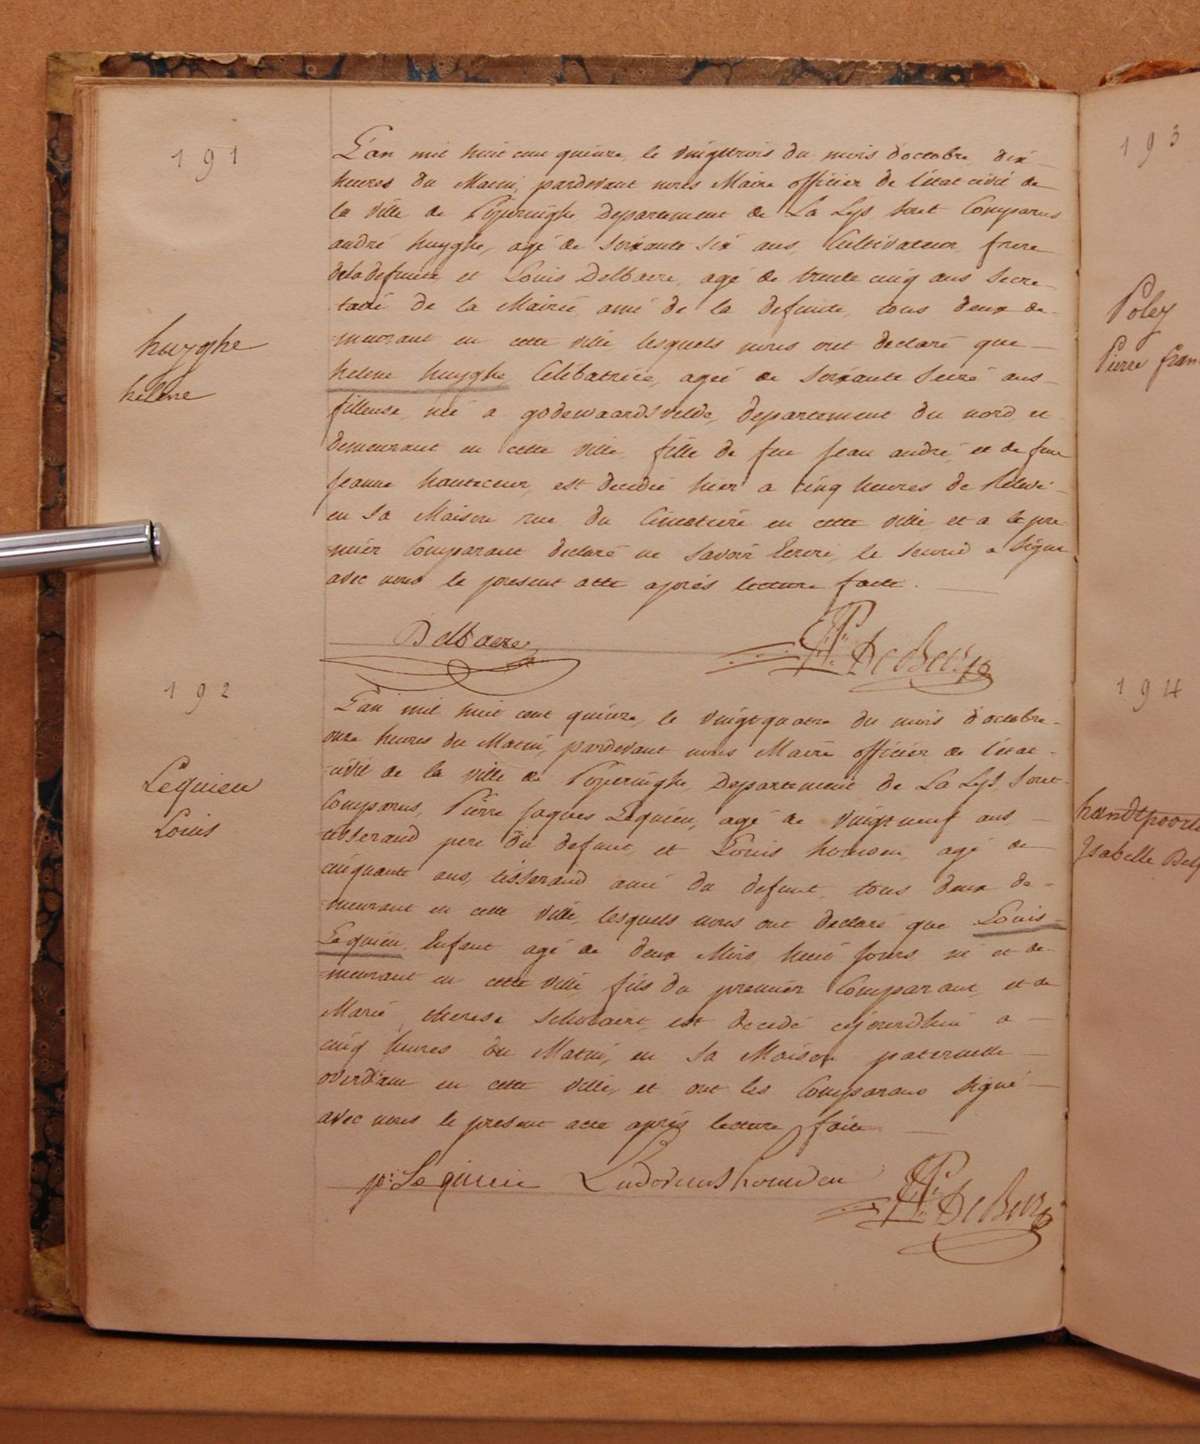 191
L'an mil huit cent quinze, le vingttrois du mois d'octobre, dix
heures du Matin, pardevant nous Maire officier de l'état civil de
la ville de Poperinghe Departement de La Lys sont Comparus
andré huyghe, agé de soixante six ans, Cultivateur, frere
de la defunte, et Louis Delbaere, agé de trente cinq ans Secre-
taire de la Mairie, ami de la defunte, tous deux de-
meurant en cette ville lesquels nous ont declaré que
huyghe
helene
helene huyghe Celibatrice, agée de soixante seize ans
fileuse, née a godewaardsvelde, departement du nord, et
demeurant en cette ville, fille de feu Jean andré, et de feue
Jeanne hautecœur, est decedée hier a cinq heures de Relevé-
en sa Maison rue du Cimetiere en cette ville et a le pre
mier Comparant declaré ne savoir Ecrire, le second a signé
avec nous le present acte après lecture faite.
Delbaere
192
L'an mil huit cent quinze, le vingtquatre du mois d'octobre-
onze heures du Matin, pardevant nous Maire officier de l'état-
civil de la ville de Poperinghe, Departement de La Lys, sont
Lequieu
Louis
Comparus, Pierre Jaques Lequieu, agé de vingt neuf ans
tisserand pere du defunt, et Louis houwen, agé de
cinquante ans, tisserand ami du defunt, tous deux de-
meurant en cette ville lesquels nous ont declaré que Louis
Lequieu, Enfant agé de deux Mois huit jours né et de-
meurant en cette ville, fils du premier Comparant, et de
Marie therese est decedé cejourdhui a
cinq heures du Matin, en sa Maison paternelle
en cette ville, et ont les Comparans signé
avec nous le present acte après lecture faite.
p: Lequieu
193
Poley
Pierre fran
194
Isabelle